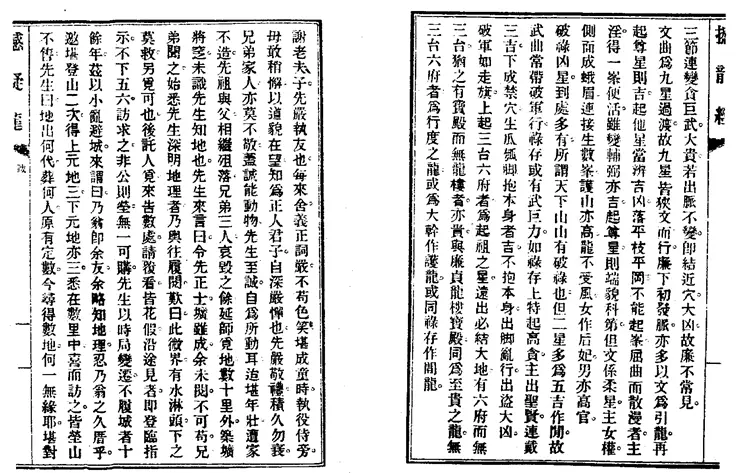 撼龍經
三節連變貪巨武大貴若出脈不變卽結近穴大凶故廉不常見
文曲爲九星過渡故九星皆狹文而行廉下初發脈亦多以文爲引龍再
起尊星則吉起他星當辨吉凶落平枝平岡不能起峯屈曲而散漫者主
淫得一峯便活雖變輔弼亦吉起尊星則端貌科第但文係柔星主女權
側面成蛾眉連接生數峯護山亦高龍不受風女作后妃男亦高官
破祿凶星到處多有所謂天下山山有破祿也但二星多爲五吉作閒故
武曲常帶破軍行祿存或有武巨力如祿存上特起高貪主出聖賢連戴
三吉下成禁穴生瓜瓠脚抱本身者吉不抱本身出脚亂行出盜大凶
破軍如走旗上起三台六府者爲起祖之星遠出必結大地有六府而無
三台猶之有寶殿而無龍樓者亦貴與廉貞龍樓寶殿同爲至貴之龍無
三台六府者爲行度之龍或爲大幹作護龍或同祿存作閒龍
謝老夫子先嚴執友也每來舍義正詞嚴不苟色笑堪成童時執役侍旁
毋敢稍懈以道貌在望知爲正人君子自深嚴憚也先嚴敬禮積久勿衰
兄弟家人亦莫不敬蓋誠能動物先生至誠自爲所動耳迨堪年壯遭家
不造先祖與父相繼殂落兄弟三人哀毀之餘延師覓地數十里外築壙
將窆未識先生知地也先生來言曰令先正士壙雖成余未閱不可苟兄
弟聞之始悉先生深明地理者乃與往履閱歎曰此微界有水淋頭下之
莫救另覓可也後託人覓來皆數處請覆看皆花假沿途見者卽登臨指
示不下五六訪求之非公則塋無一可購先生以時局變遷不履城者十
餘年茲以小亂避城來謂曰乃翁卽余友余略知地理忍乃翁之久厝乎
邀堪登山二次得上元地三下元地亦三悉在數里中喜而訪之皆塋山
不售先生曰地出何代葬何人原有定數今尋得數地何一無緣耶堪對
疑龍
跋